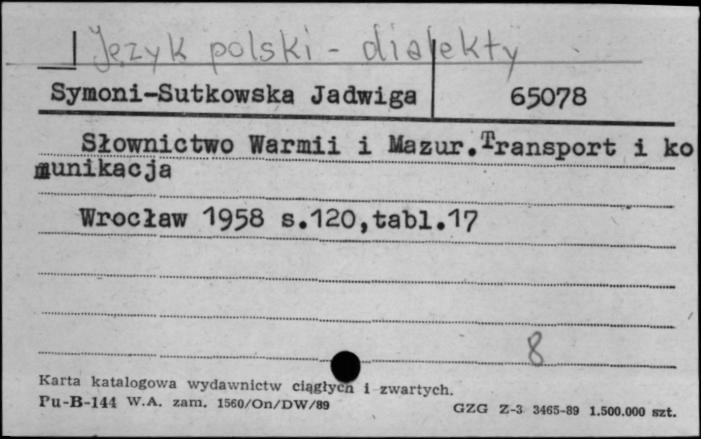 Język polski - dialekty
Symoni-Sutkowska Jadwiga 65078
Słownictwo Warmii i Mazur.Transport i ko
munikacja
Wrocław 1958 s.120,tabl.17
8
Karta katalogowa wydawnictw ciągłych i zwartych.
Pu-B-144 W.A. zam. 1560/On/DW/89 GZG Z-3 3465-89 1.500.000 szt.